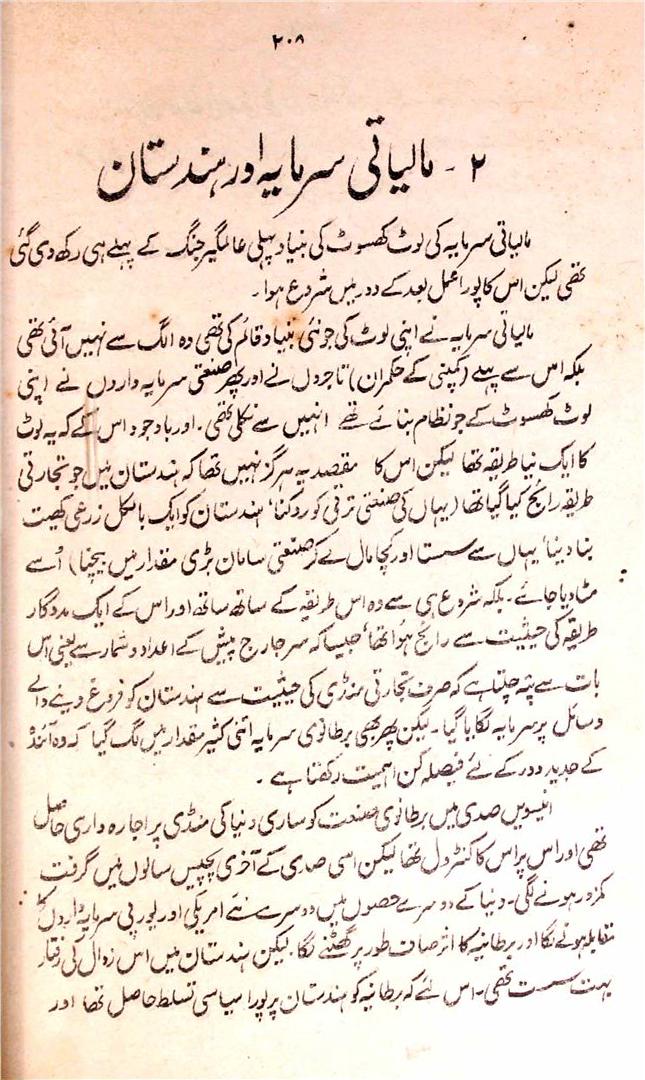 ۲۰۸
۲ - مالیاتی سرمایہ اور ہندستان
مالیاتی سرمایہ کی لوٹ کھسوٹ کی بنیاد پہلی عالمگیر جنگ کے پہلے ہی رکھ دی گئی
تھی لیکن اس کا پورا عمل بعد کے دور میں شروع ہوا۔
مالیاتی سرمایہ نے اپنی لوٹ کی جو نئی بنیاد قائم کی تھی وہ الگ سے نہیں آئی تھی
بلکہ اس سے پہلے (کمپنی کے حکمران) تاجروں نے اور پھر صنعتی سرمایہ داروں نے اپنی
لوٹ کھسوٹ کے جو نظام بنائے تھے انہیں سے نکلی تھی۔ اور باوجود اس کے کہ یہ لوٹ
کا ایک نیا طریقہ تھا لیکن اس کا مقصد یہ ہرگز نہیں تھا کہ ہندستان میں جو تجارتی
طریقہ رائج کیا گیا تھا (یہاں کی صنعتی ترقی کو روکنا، ہندستان کو ایک بالکل زرعی کھیت
بنا دینا، یہاں سے سستا اور کچا مال لے کر صنعتی سامان بڑی مقدار میں بیچنا) اُسے
مٹا دیا جائے۔ بلکہ شروع ہی سے وہ اس طریقہ کے ساتھ ساتھ اور اس کے ایک مددگار
طریقہ کی حیثیت سے رائج ہُوا تھا، جیسا کہ سر جارج پیش کے اعداد و شمار سے یعنی اس
بات سے پتہ چلتا ہے کہ صرف تجارتی منڈی کی حیثیت سے ہندستان کو فروغ دینے والے
وسائل پر سرمایہ لگایا گیا۔ لیکن پھر بھی برطانوی سرمایہ اتنی کثیر مقدار میں لگ گیا کہ وہ آئندہ
کے جدید دور کے لئے فیصلہ کن اہمیت رکھتا ہے۔
انیسویں صدی میں برطانوی صنعت کو ساری دنیا کی منڈی پر اجارہ داری حاصل
تھی اور اس پر اس کا کنٹرول تھا لیکن اسی صدی کے آخری پچیس سالوں میں گرفت
کمزور ہونے لگی۔ دنیا کے دوسرے حصوں میں دوسرے نئے امریکی اور یورپی سرمایہ داروں کا
مقابلہ ہونے لگا اور برطانیہ کا اثر صاف طور پر گھٹنے لگا۔ لیکن ہندستان میں اس زوال کی رفتار
بہت سست تھی۔ اس لئے کہ برطانیہ کو ہندستان پر پورا سیاسی تسلط حاصل تھا اور